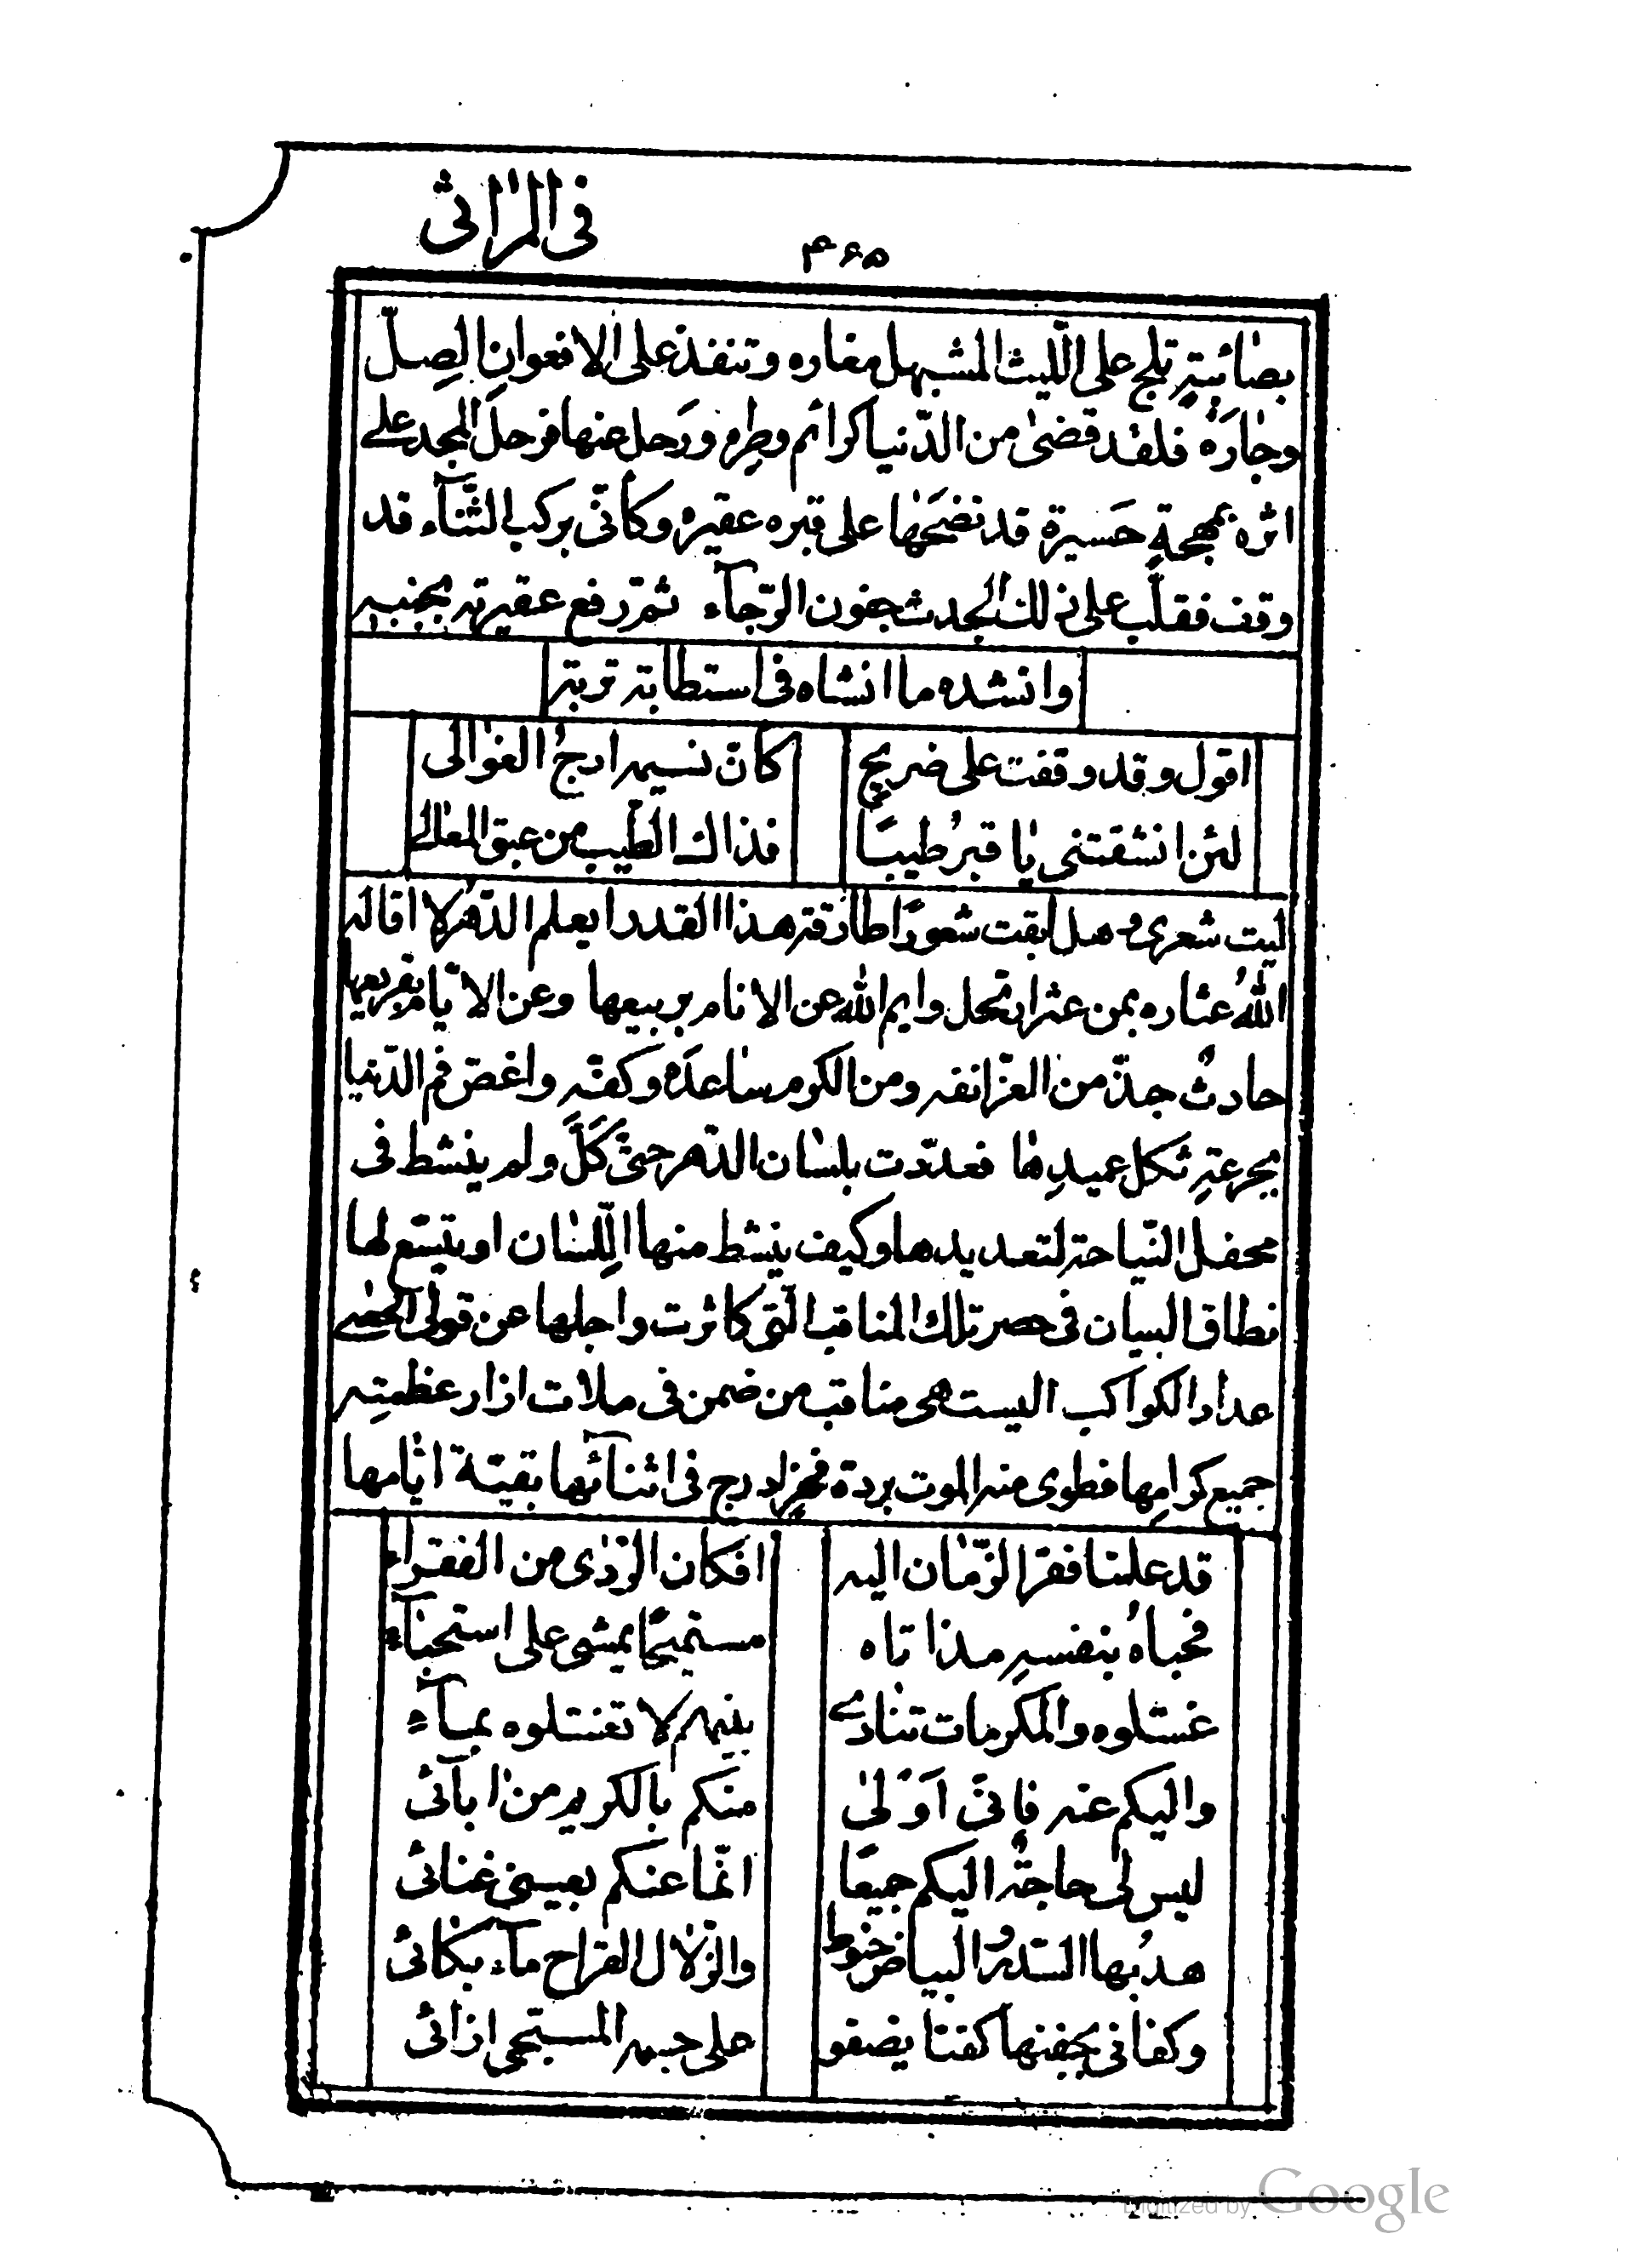 فى المراثى
۴۶۵
بصائبة تلج على الليث المشبل مغاره وتنفذ على الافعوان الصل
وجاره فلقد قضى من الدنيا كرائم وطره ورحل عنها فرحل المجد على
اثره بمهجة حسيرة قد نضحها على قبره عقيره وكأنى بركب الثناء قد
وقف فقلب على ذلك الجدث جفون الرجاء ثم رفع عقيرته بجنبيه
وانشده ما انشاه فى استطابة تربته
اقول وقد وقفت على ضريح كان نسيمه ارج الغوالى
لئن انشقتنى يا قبر طيبا فذاك الطيب من عبق المعالى
ليت شعرى وهل ابقت شعورا طارقة هذا القدر ايعلم الدهر لا اقاله
الله عثاره بمن عثر ارتحل وايم الله عن الانام بربيعها وعن الايام بقريعها
حادث جذ من العز انفه ومن الكرم ساعده وكفه واغص فم الدنيا
بجرعة ثكل عميدها فعددت بلسان الدهر حتى كل ولم ينشط فى
محفل النياحة لتعديدها وكيف ينشط منها اللسان او يتسع لها
نطاق البيان فى حصر تلك المناقب التى كاثرت واجلها عن قولى الحصى
عداد الكواكب اليست هى مناقب من ضمن فى ملات ازار عظمته
جميع كرامها فطوى منه الموت بردة فخر ادرج فى اثنائها بقية ايامها
قد علمنا فقر الزمان اليه افكان الردى من الفقراء
فحباه بنفسه مذ اتاه مستميحا يمشى على استحياء
غسلوه والمكرمات تنادى بينهم لا تغسلوه بماء
واليكم عنه فانى اولى منكم بالكريم من ابائى
ليس لى حاجة اليكم جميعا انما عنكم بعينى غنائى
هدبها السدر والبياض حنوط والزلال القراح ماء بكائى
وكفانى بجفنها كفنا يضفو على جسمه المسجى ازائى